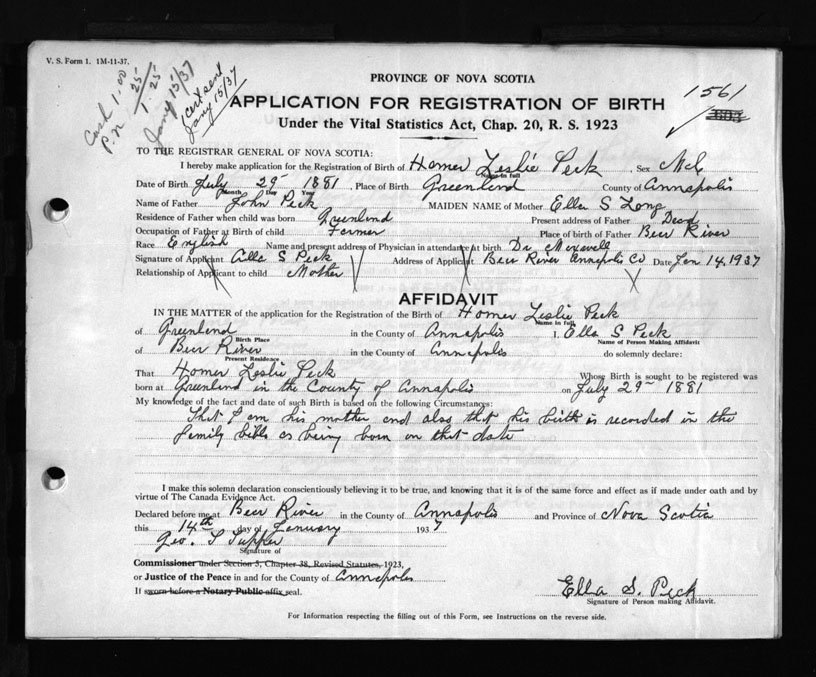 V. S. Form 1. 1M-11-37.
Cash 1.00
P.N. 25
1.25
Jany 15/37
cert sent
Jany 15/37
PROVINCE OF NOVA SCOTIA
1561
APPLICATION FOR REGISTRATION OF BIRTH
Under the Vital Statistics Act, Chap. 20, R. S. 1923
TO THE REGISTRAR GENERAL OF NOVA SCOTIA:
I hereby make application for the Registration of Birth of Homer Leslie Peck, Sex
Name in full
Date of Birth July 29 1881, Place of Birth Greenland County of Annapolis
Month Day Year
Name of Father John Peck MAIDEN NAME of Mother Ella S Long
Residence of Father when child was born Greenland Present address of Father Dead
Occupation of Father at Birth of child Farmer Place of birth of Father Bear River
Race English Name and present address of Physician in attendance at birth Dr
Signature of Applicant Ella S Peck Address of Applicant Bear River Annapolis Co Date Jan 14, 1937
Relationship of Applicant to child Mother
AFFIDAVIT
IN THE MATTER of the application for the Registration of the Birth of Homer Leslie Peck
Name in full
of Greenland in the County of Annapolis I, Ella S Peck
Birth Place Name of Person Making Affidavit
of Bear River in the County of Annapolis do solemnly declare:
Present Residence
That Homer Leslie Peck Whose Birth is sought to be registered was
born at Greenland in the County of Annapolis on July 29 1881
My knowledge of the fact and date of such Birth is based on the following Circumstances:
That I am his mother and also that his birth is recorded in the
family bible as being born on that date
I make this solemn declaration conscientiously believing it to be true, and knowing that it is of the same force and effect as if made under oath and by
virtue of The Canada Evidence Act.
Declared before me at Bear River in the County of Annapolis and Province of Nova Scotia
this 14th day of January 1937
Geo. S Tupper
Signature of
Commissioner under Section 3, Chapter 38, Revised Statutes, 1923,
or Justice of the Peace in and for the County of Annapolis
If sworn before a Notary Public affix seal.
Ella S. Peck
Signature of Person making Affidavit.
For Information respecting the filling out of this Form, see Instructions on the reverse side.